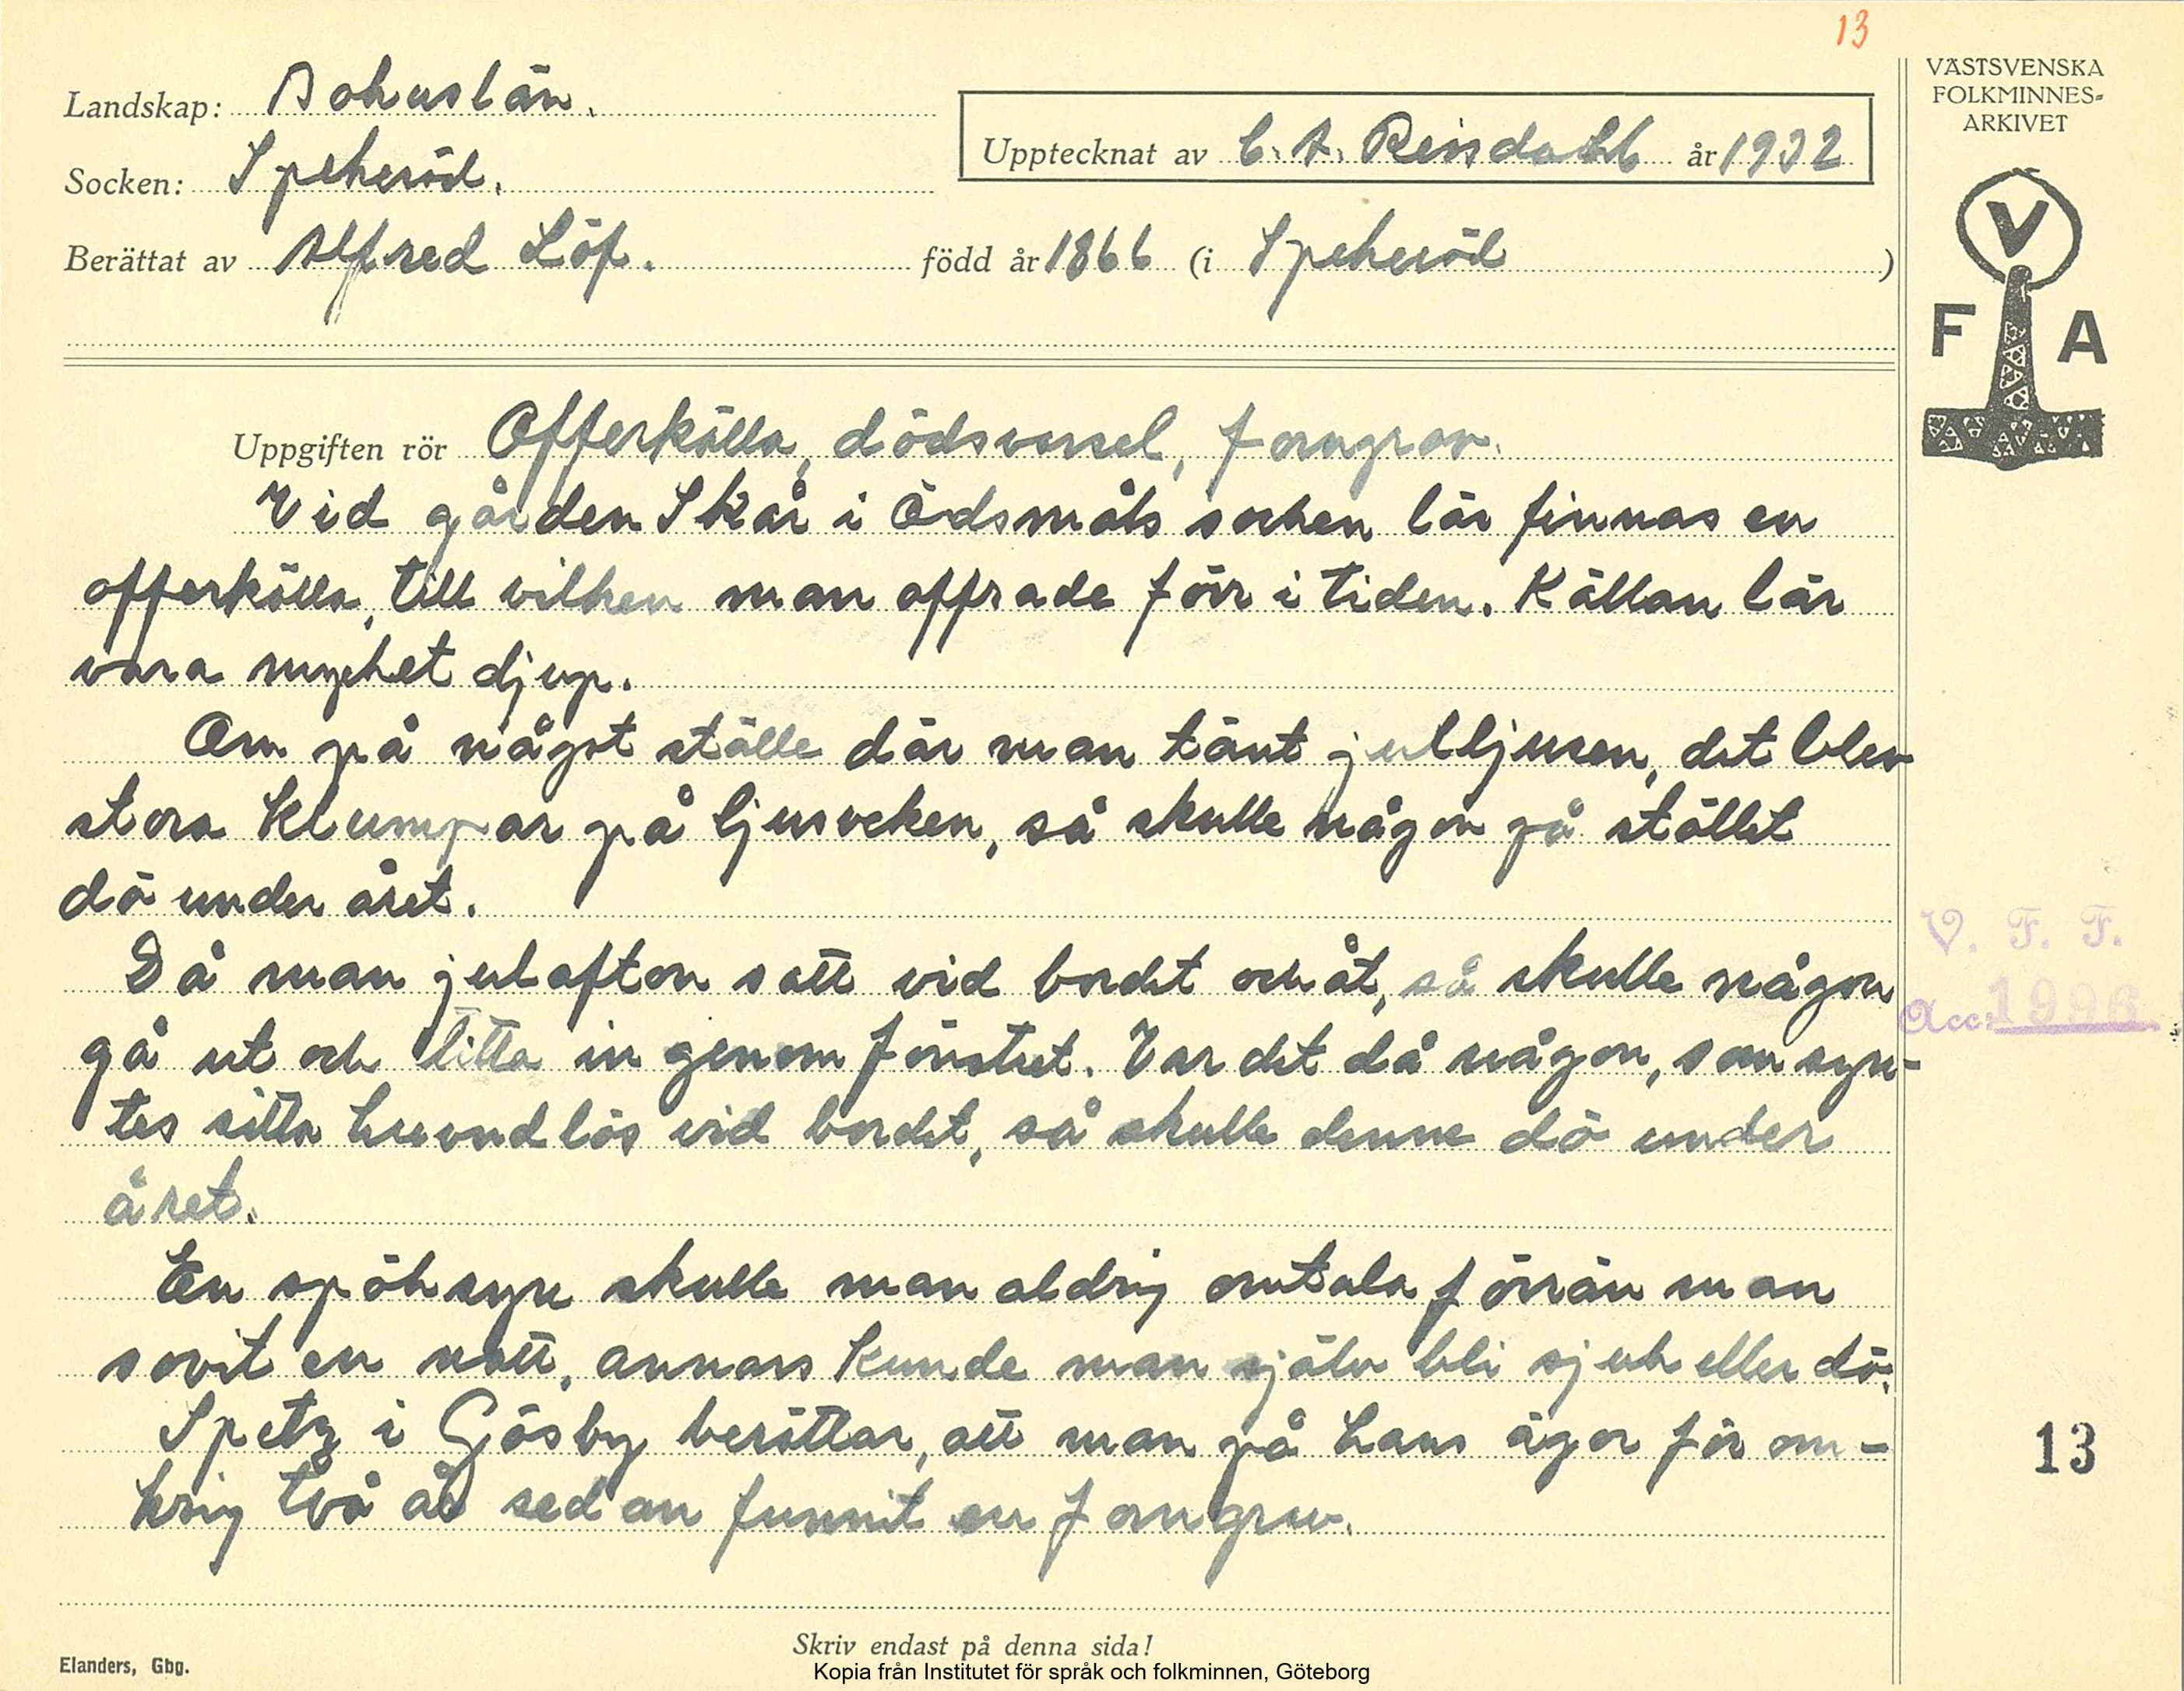 13
VÄSTSVENSKA
FOLKMINNES=
ARKIVET
Landskap: Bohuslän.
Upptecknat av C. A. år 1932
Socken: Spekeröd.
Berättat av Alfred Löf. född år 1866 (i Spekeröd )
V
F A
Uppgiften rör Offerkälla, dödsvarsel, forngrav.
Vid gården Skår i Ödsmåls socken lär finnas en
offerkälla, till vilken man offrade förr i tiden. Källan lär
vara mycket djup.
Om på något ställe där man tänt julljusen, det blev
stora klumpar på ljusveken, så skulle någon på stället
dö under året.
Då man julafton satt vid bordet och åt, så skulle någon
gå ut och titta in genom fönstret. Var det då någon, som syn-
tes sitta huvudlös vid bordet, så skulle denne dö under
året.
En spöksyn skulle man aldrig omtala förrän man
sovit en natt, annars kunde man själv bli sjuk eller dö.
Spetz i Gösby berättar, att man på hans ägor för om-
kring två år sedan funnit en forngrav.
V. F. F.
Acc. 1996
13
Skriv endast på denna sida!
Elanders, Gbg.
Kopia från Institutet för språk och folkminnen, Göteborg